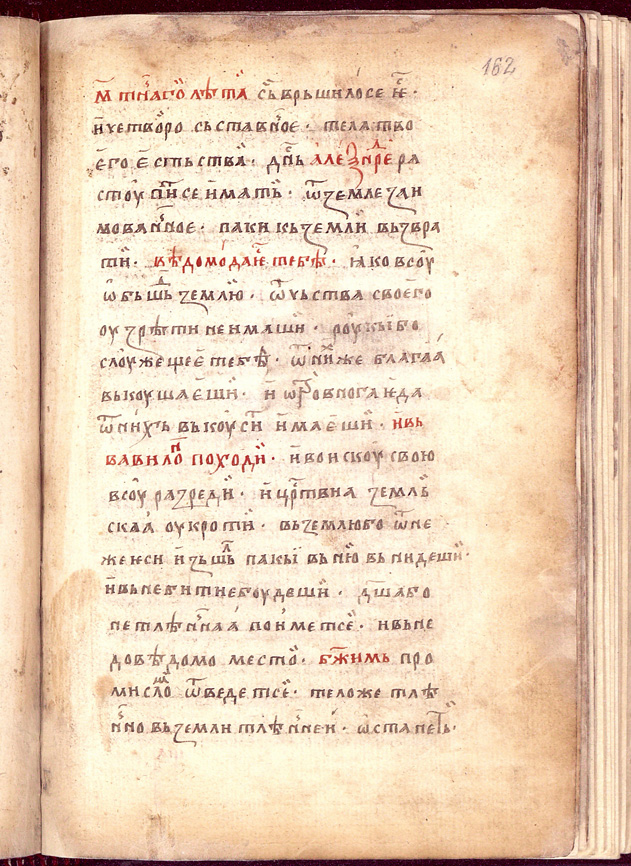 162
м҃ тнаго лѣта съврьшилосе ѥс҇ ·
и четворо съставное · тела тво
его естьства · днь алеѯндре ра
стоупити се имать · ѿ земле заи
мованное · паки къ земли възвра
ти · вѣдомо да ѥ тебѣ · ꙗко всоу
ѡбьшьд землю · ѿчьства своего
оузрѣти не имаши · роукы бо
слоужещее тебѣ · ѿ нихже благаа
выкоушаеши · и
ѿ нихъ выкоусити имаеши · и вь
вавилон походи · и воискоу свою
всоу разреди · и црс҇твиа земль
скаа оукроти · въ землю бо ѿ не
же ѥси изьшьл пакы вь ню вьнидеши ·
и вь небитие боудеши · дш҃а бо
нетлѣннаа поиметсе · и вь не
довѣдомо место · бж҃иимь про
мисломь ѿведетсе · тело же тлѣ
нно вь земли тлѣннеи · ѡстанеть ·